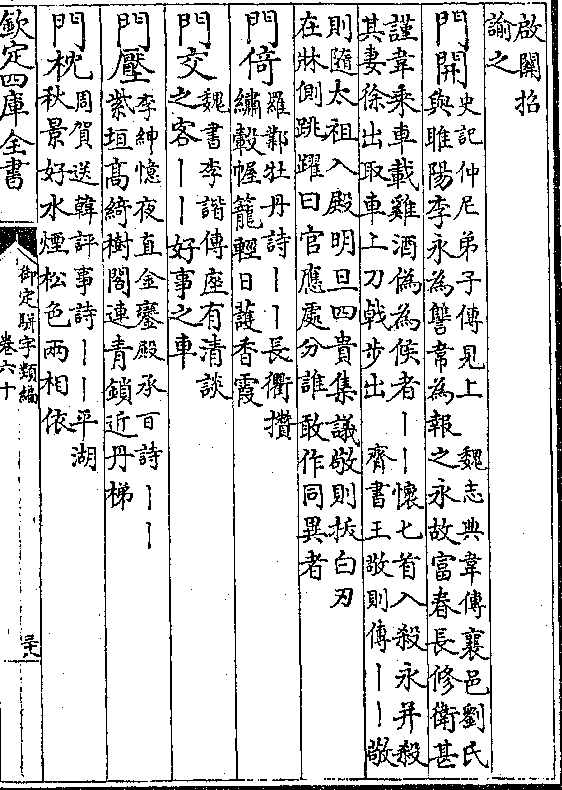 啟關招
諭之
門開史記仲尼弟子傳見上　魏志典韋傳襄邑劉氏
與睢陽李永為讐韋為報之永故富春長修衛甚
謹韋乘車載雞酒偽為候者丨丨懷匕首入殺永并殺
其妻徐出取車上刀戟步出　齊書王敬則傳丨丨敬
則隨太祖入殿明旦四貴集議敬則拔白刃
在牀側跳躍曰官應處分誰敢作同異者
門倚羅鄴牡丹詩丨丨長衢攢
繡轂幄籠輕日䕶香霞
門交魏書李諧傳座有清談
之客丨丨好事之車
門壓李紳憶夜直金鑾殿承百詩丨丨
紫垣髙綺樹閣連青鎖近丹梯
門枕周賀送韓評事詩丨丨平湖
秋景好水煙松色兩相依
欽定四庫全書
御定駢字類編
卷六十